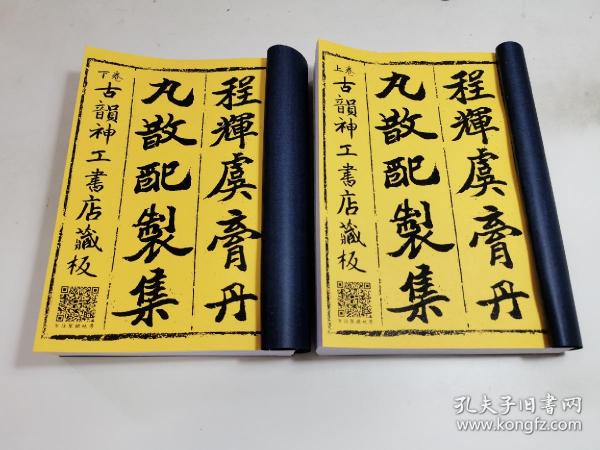 程輝虞膏丹
丸散配製集
下卷
古韻神工書店藏板
程輝虞膏丹
丸散配製集
上卷
古韻神工書店藏板
孔夫子旧书网
www.kongfz.com